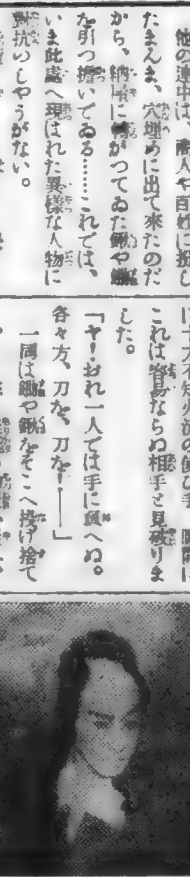 他の連中は、商人や百姓に扮し
たまんま、穴埋めに出て来たのだ
から、納屋に転がつてゐた鋤や鍬
を引つ担いでゐる……これでは、
いま此處へ現はれた異様な人物に
對抗のしやうがない。
これは容易ならぬ相手と見破りま
した。
「ヤ！おれ一人では手に負へぬ。
各々方、刀を、刀を！――」
一同は鋤や鍬をそこへ投げ捨て